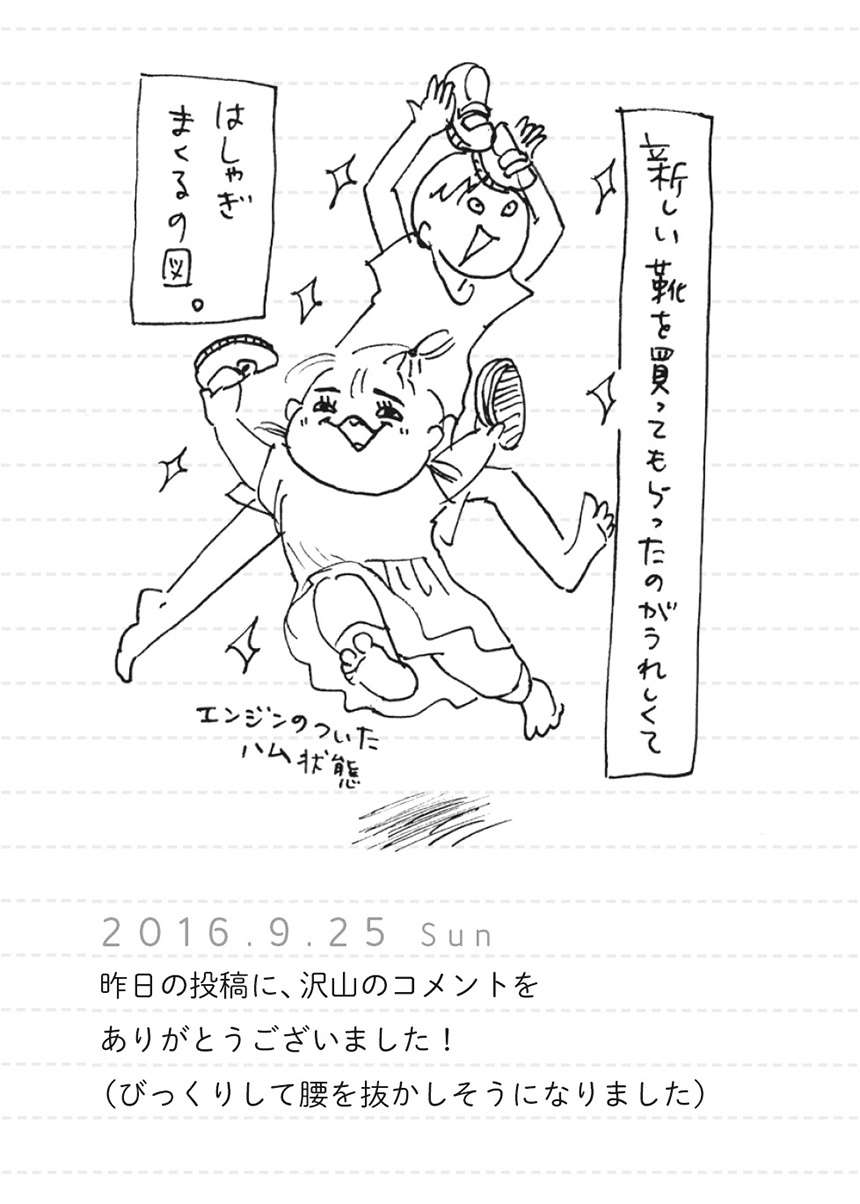 新しい靴を買ってもらったのがうれしくて
はしゃぎ
まくるの図。
エンジンのついた
ハム状態
2016.9.25 Sun
昨日の投稿に、沢山のコメントを
ありがとうございました！
（びっくりして腰を抜かしそうになりました）